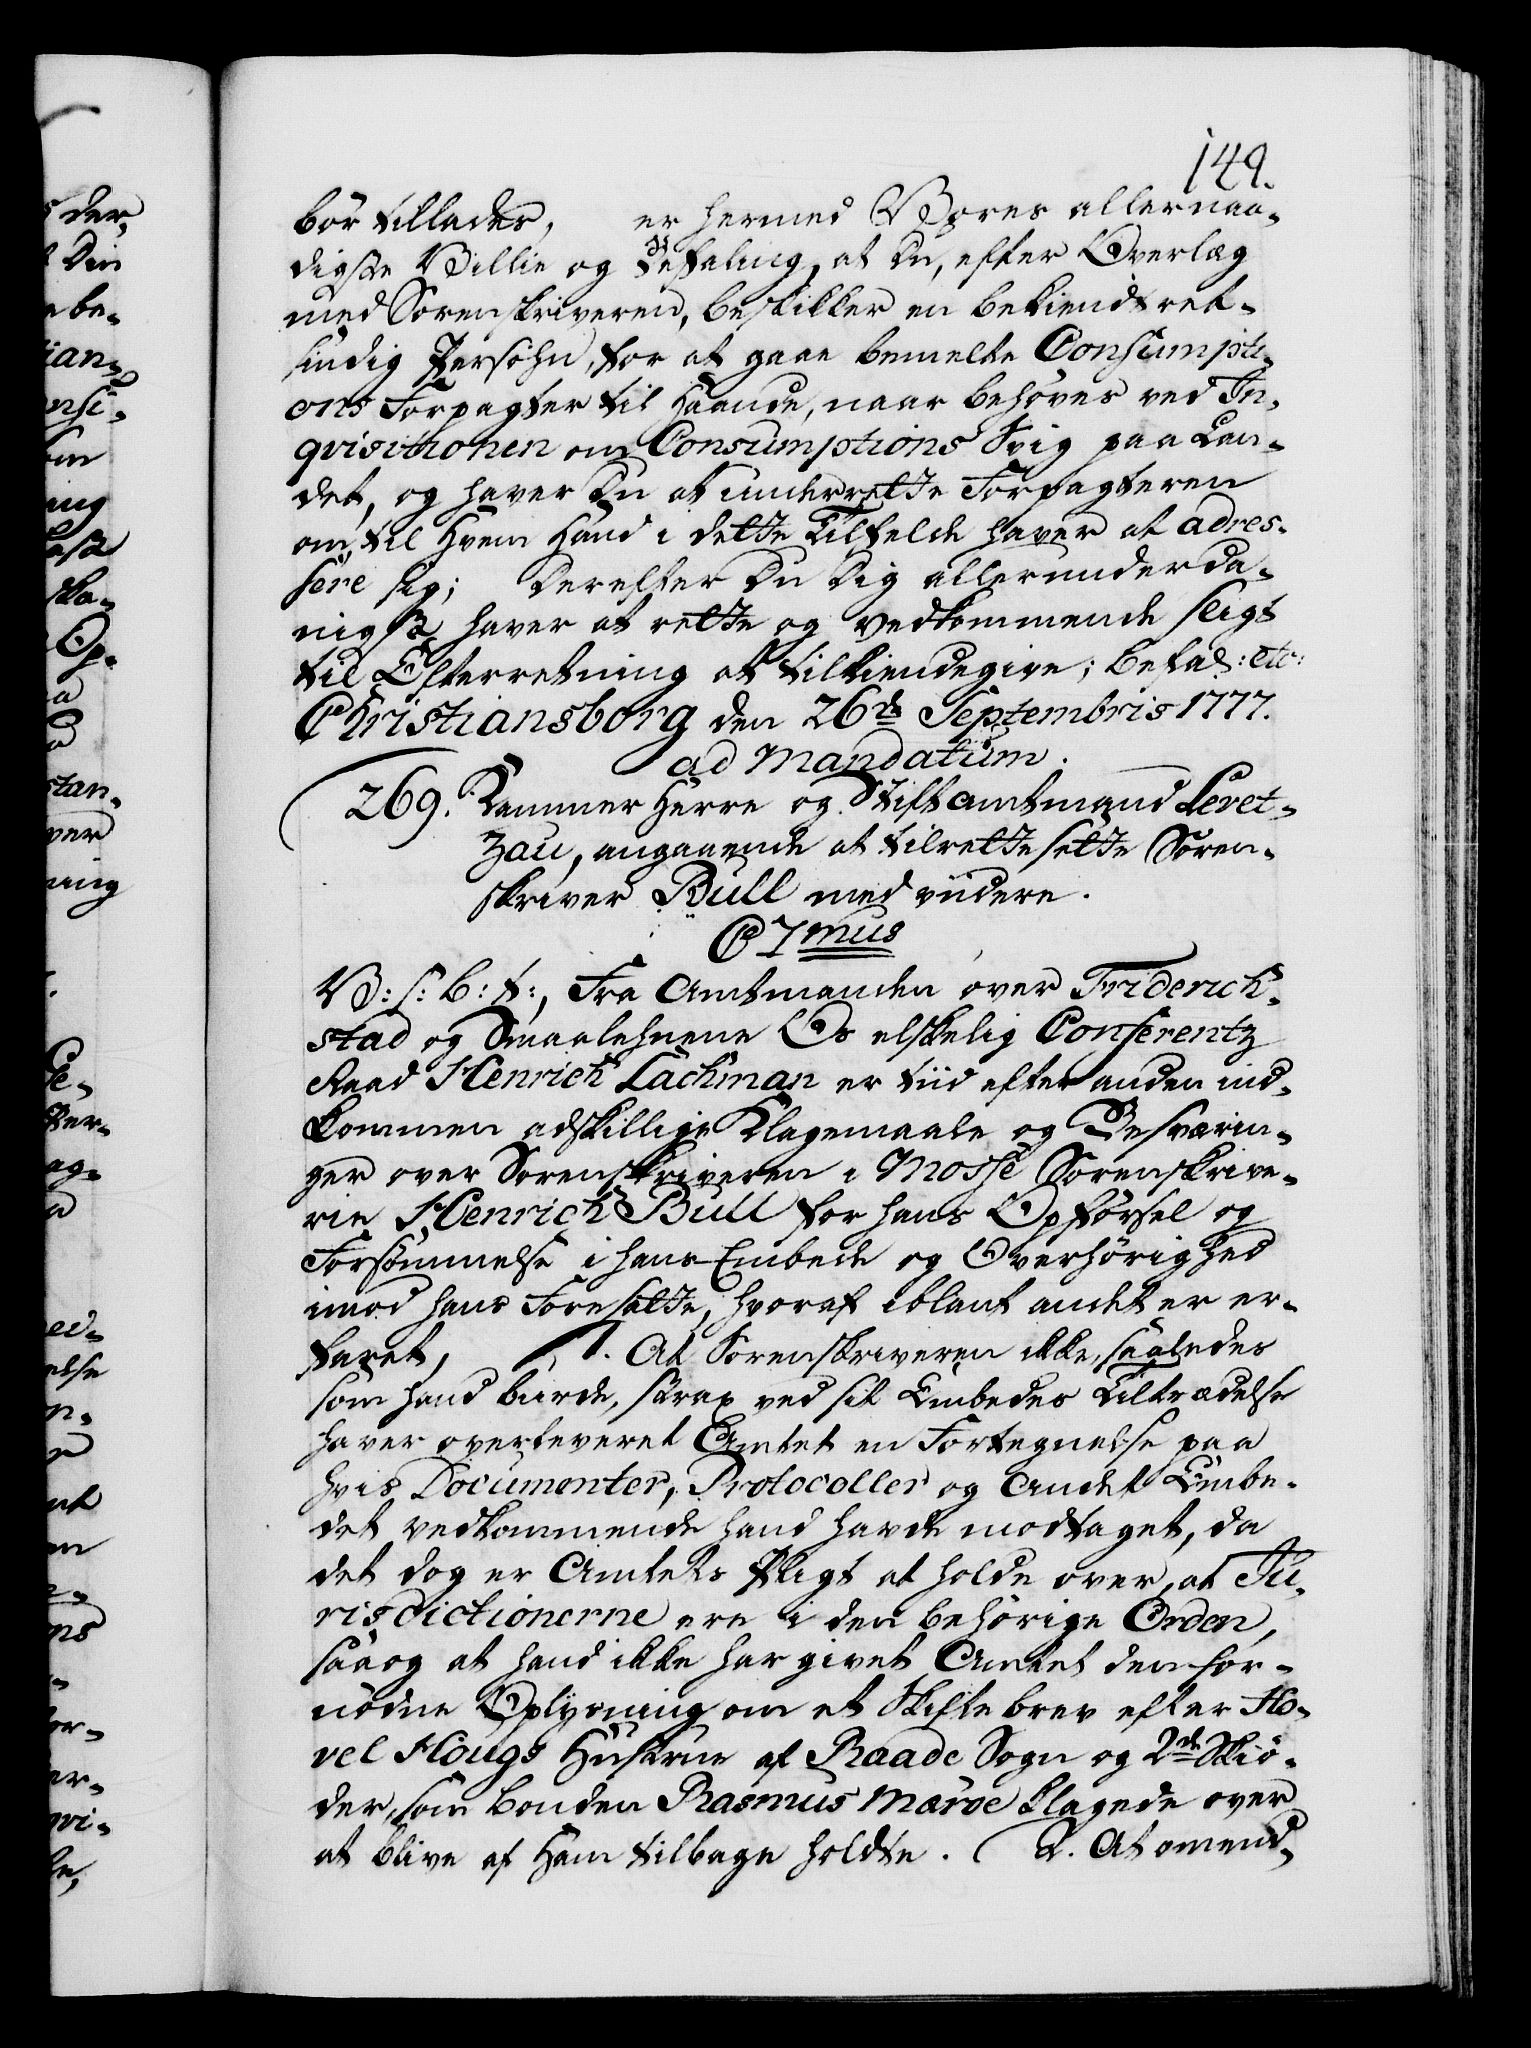 149.
bör tillades, er hermed Vores allernaa-
digste Villie og Befaling, at Du, efter Overlæg
med Sorenskriveren, beskikker en bekiendt ret-
sindig Persohn, for at gaae bemelte Consumpti-
ons Forpagter til Haande, naar behöves ved In-
qvisitionen om Consumptions Svig paa Lan-
det, og haver Du at underrette Forpagteren
om, til hvem hand i dette Tilfelde haver at adres-
sere sig; Derefter Du Dig allerunderda-
nigst haver at rette og vedkommende sligt
til Efterretning at tilkiendegive; befal: etc:
Christiansborg den 26de Septembris 1777.
ad Mandatum.
269. Kammer Herre og Stiftamtmand Levet-
zau, angaaende at tilrettesette Soren-
skriver Bull med viidere.
C 7mus
V: s: b: t:, Fra Amtmanden over Friderich-
stad og Smaalehnene Os elskelig Conferentz
Raad Henrich Lachman er tiid efter anden ind-
kommen adskillige Klagemaale og Besværin-
ger over Sorenskriveren i Mosse Sorenskrive-
rie Henrich Bull for hans Opförsel og
Forsömmelse i hans Embede og Overhörighed
imod hans Foresatte, hvoraf iblant andet er er-
faret, 1. At Sorenskriveren ikke, saaledes
som hand burde, strax ved sit Embedes Tiltrædelse
haver overleveret Amtet en Fortegnelse paa
hvis Documenter, Protocoller og Andet Embe-
det vedkommende hand havde modtaget, da
det dog er Amtets Pligt at holde over, at Ju-
risdictionerne ere i den behörige Orden,
saaog at hand ikke har givet Amtet den for-
nödne Oplysning om et Skiftebrev efter Ho-
vel Hougs Hustrue af Raade Sogn og 2de Skiö-
der, som bonden Rasmus Marve klagede over
at blive af Ham tilbage holdte. 2. At omend-